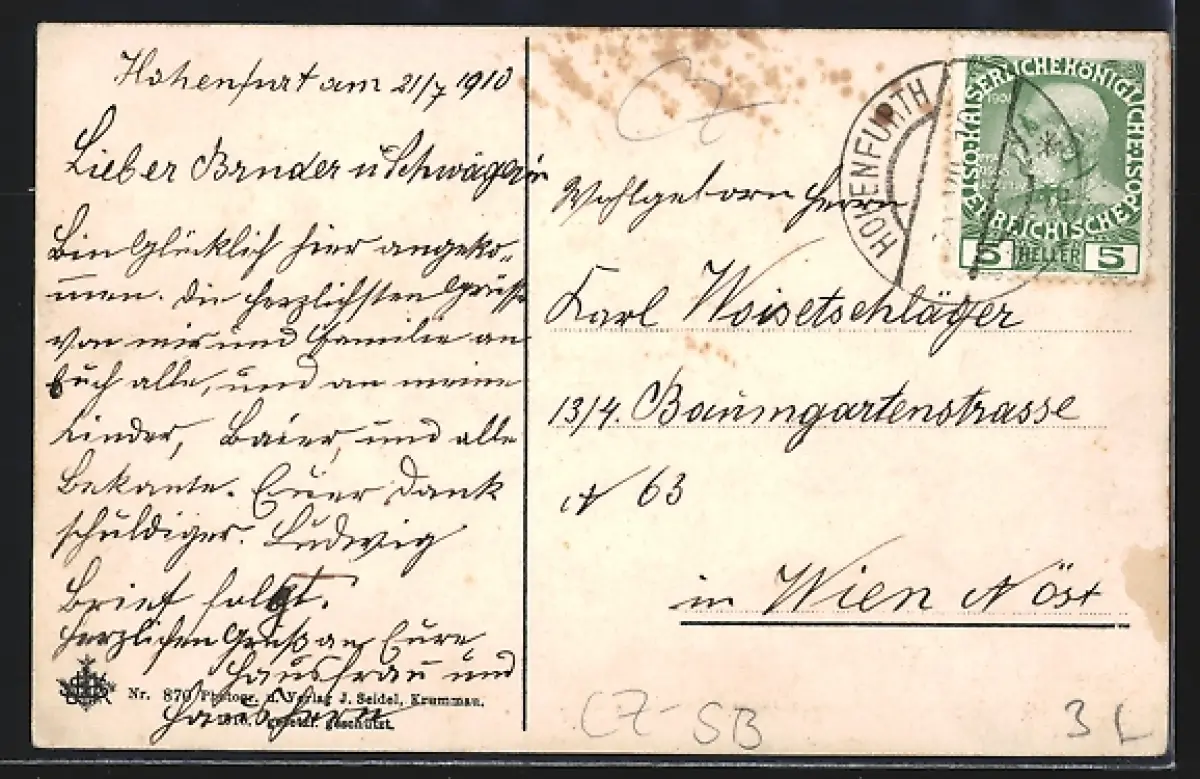 Hohenfurt am 21/7 1910
Lieber Bruder u Schwägerin
Bin Glücklich hier angeko-
men. Die herzlichsten Grüße
von mir und Familie an
Euch alle, und an meine
Kinder, Baier, und alle
Bekante. Euer Dank
schuldiger. Ludwig
Brief folgt.
Herzlichen Gruß an Eure
Hausfrau und
Hausherr
Nr. 870 Photogr. u. Verlag J. Seidel, Krummau.
gesetzl. geschützt.
CZ
HOHENFURTH
KAISERLICHE KÖNIGLICHE ÖSTERREICHISCHE POST
5 HELLER 5
Wohlgeborn Herrn
Karl Woisetschläger
13/4. Baumgartenstrasse
N 63
in Wien Nöst
CZ-SB
3L